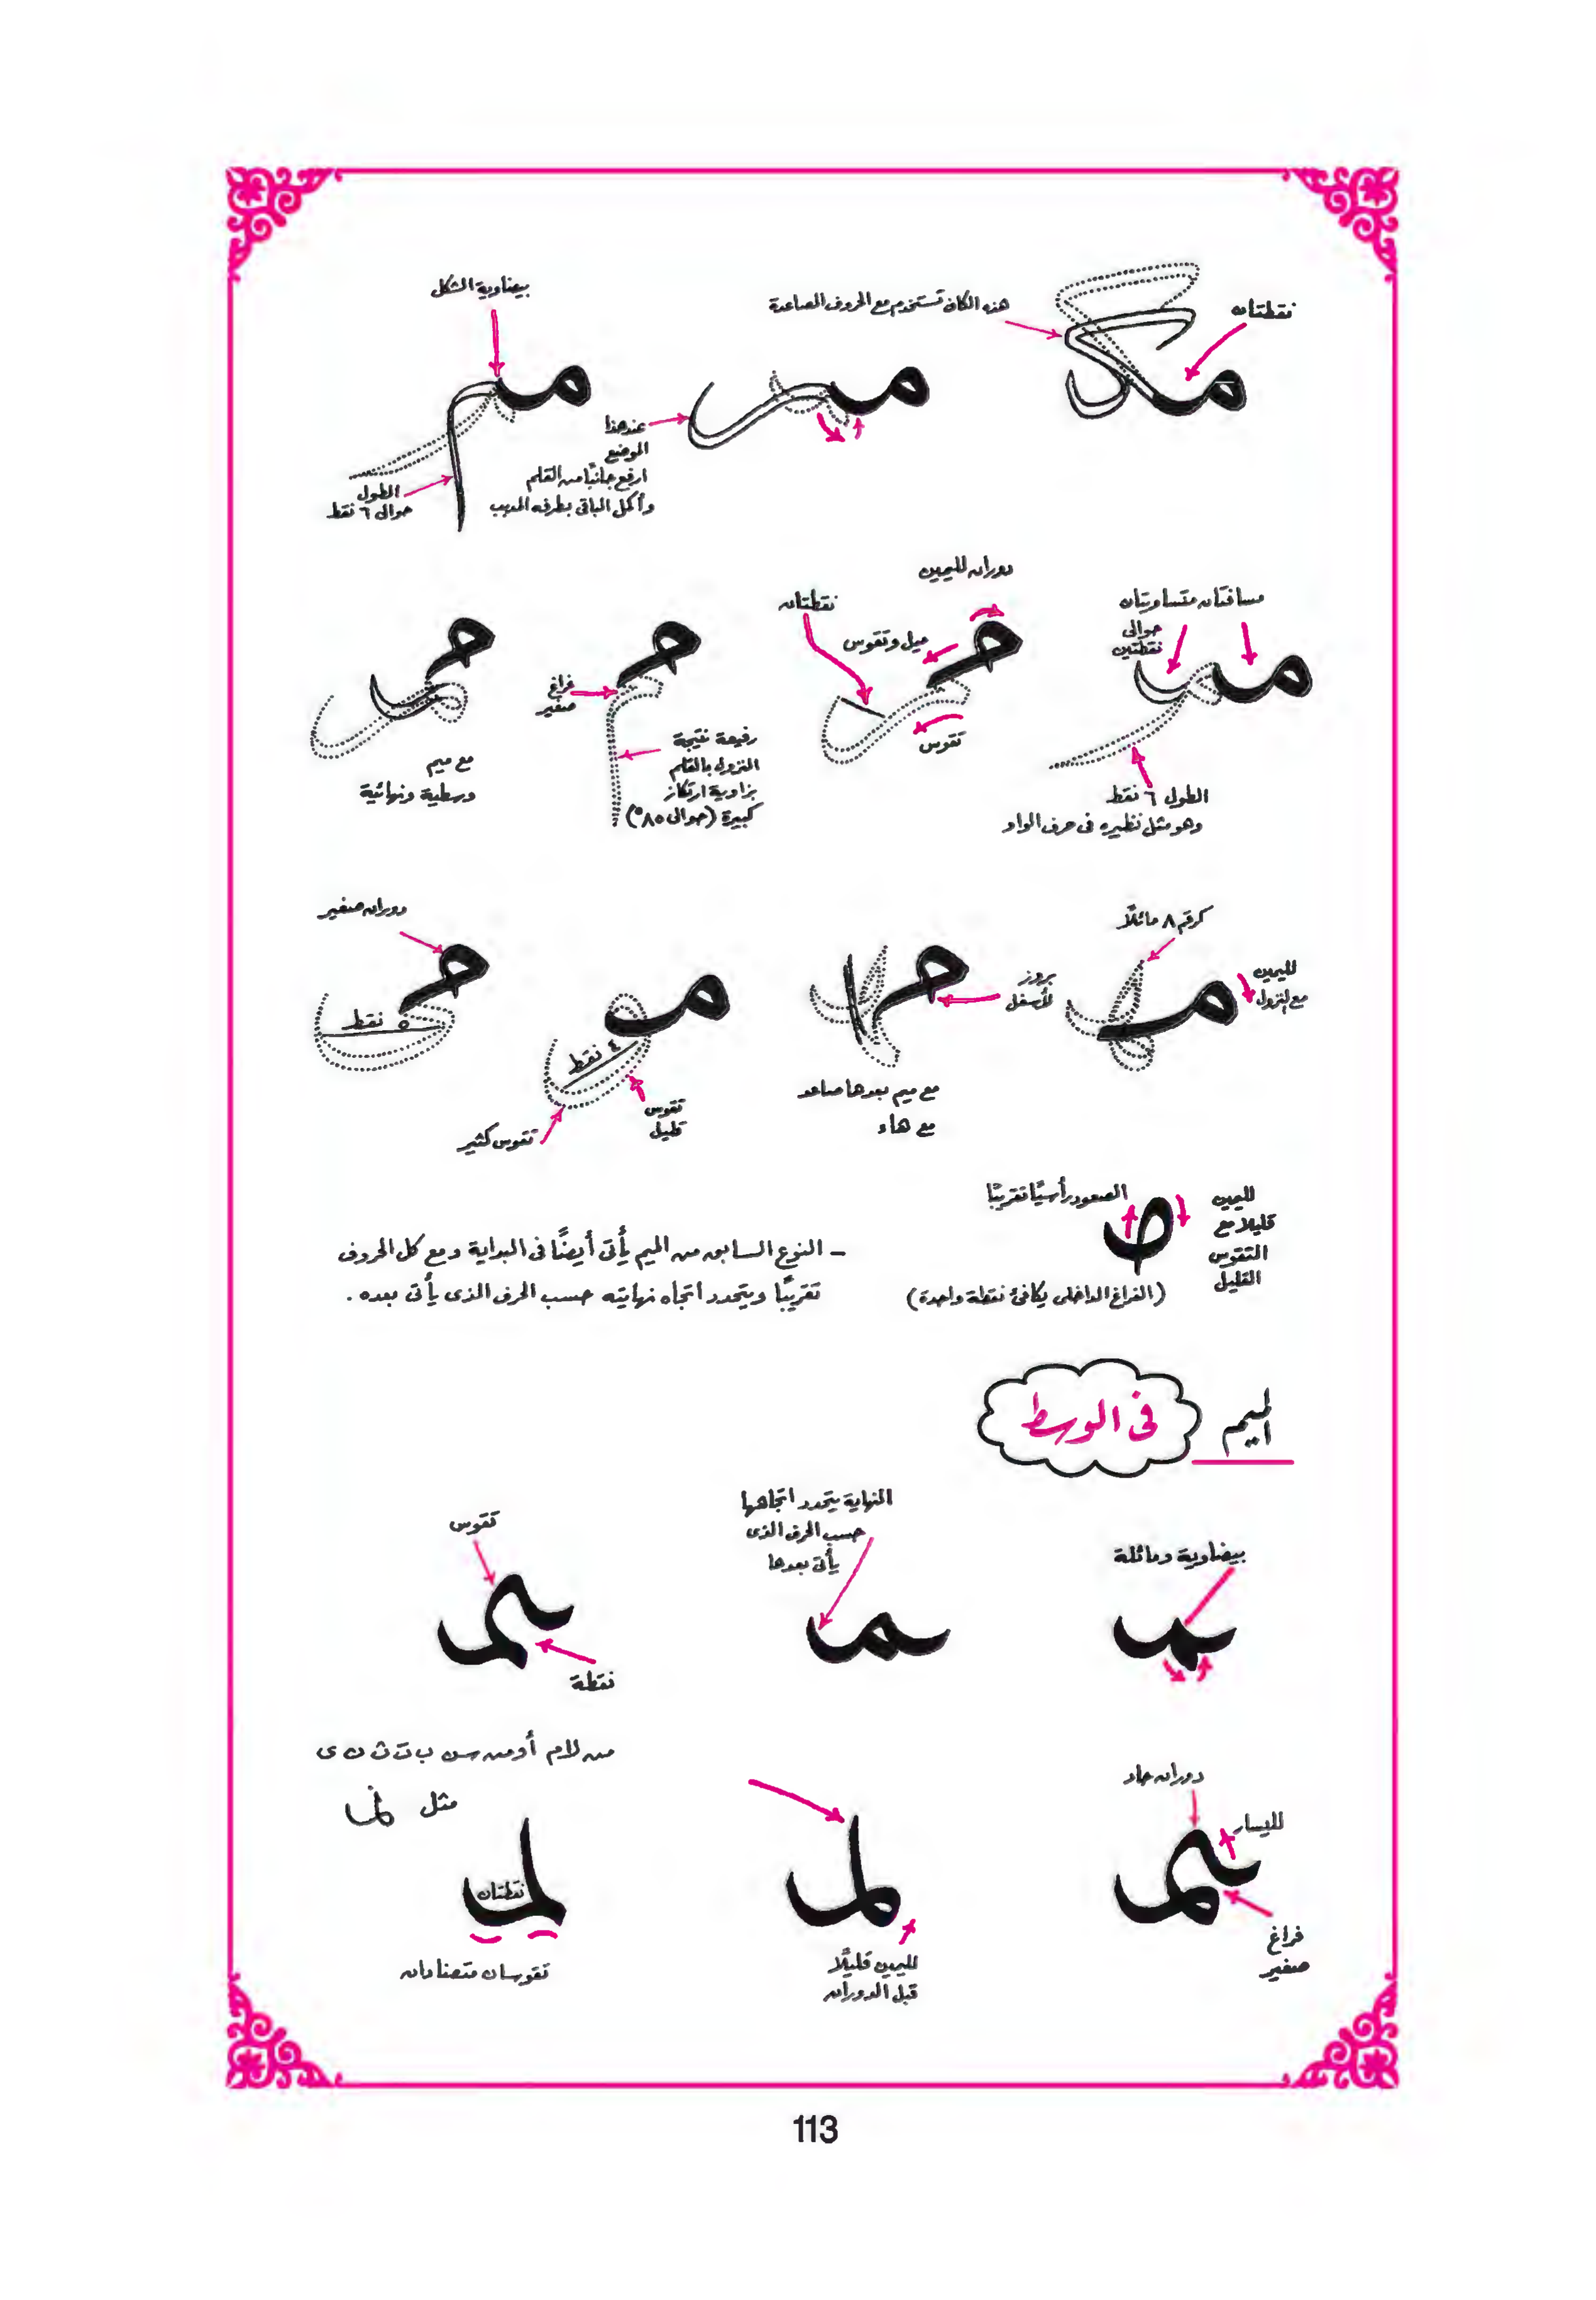 نقطتان
هذه الكاف تستخدم مع الحروف الصاعدة
بيضاوية الشكل
عند هذا
الموضع
ارفع جانبًا من القلم
وأكمل الباقى بطرفه المدبب
الطول
حوالى ٦ نقط
مسافتان متساويتان
حوالى
نقطتين
الطول ٦ نقط
وهو مثل نظيره فى حرف الواو
دوران لليمين
نقطتان
ميل وتقوس
تقوس
فراغ
صغير
رفيعة نتيجة
النزول بالقلم
بزاوية ارتكاز
كبيرة (حوالى ٨٥°)
مع ميم
وسطية ونهائية
كرقم ٨ مائلًا
لليمين
مع النزول
بروز
لأسفل
مع ميم بعدها صاعد
مع هاء
٤ نقط
تقوس
قليل
تقوس كثير
دوران صغير
٥ نقط
الصعود رأسيًا تقريبًا
لليمين
قليلا مع
التقوس
القليل
(الفراغ الداخلى يكافئ نقطة واحدة)
– النوع السابق من الميم يأتى أيضًا فى البداية ومع كل الحروف
تقريبًا ويتحدد اتجاه نهايته حسب الحرف الذى يأتى بعده .
الميم فى الوسط
بيضاوية ومائلة
النهاية يتحدد اتجاهها
حسب الحرف الذى
يأتى بعدها
تقوس
نقطة
دوران حاد
لليسار
فراغ
صغير
لليمين قليلًا
قبل الدوران
من لام أو من سن ب ت ث ن ى
مثل نمـ
نقطتان
تقوسان متضادان
113